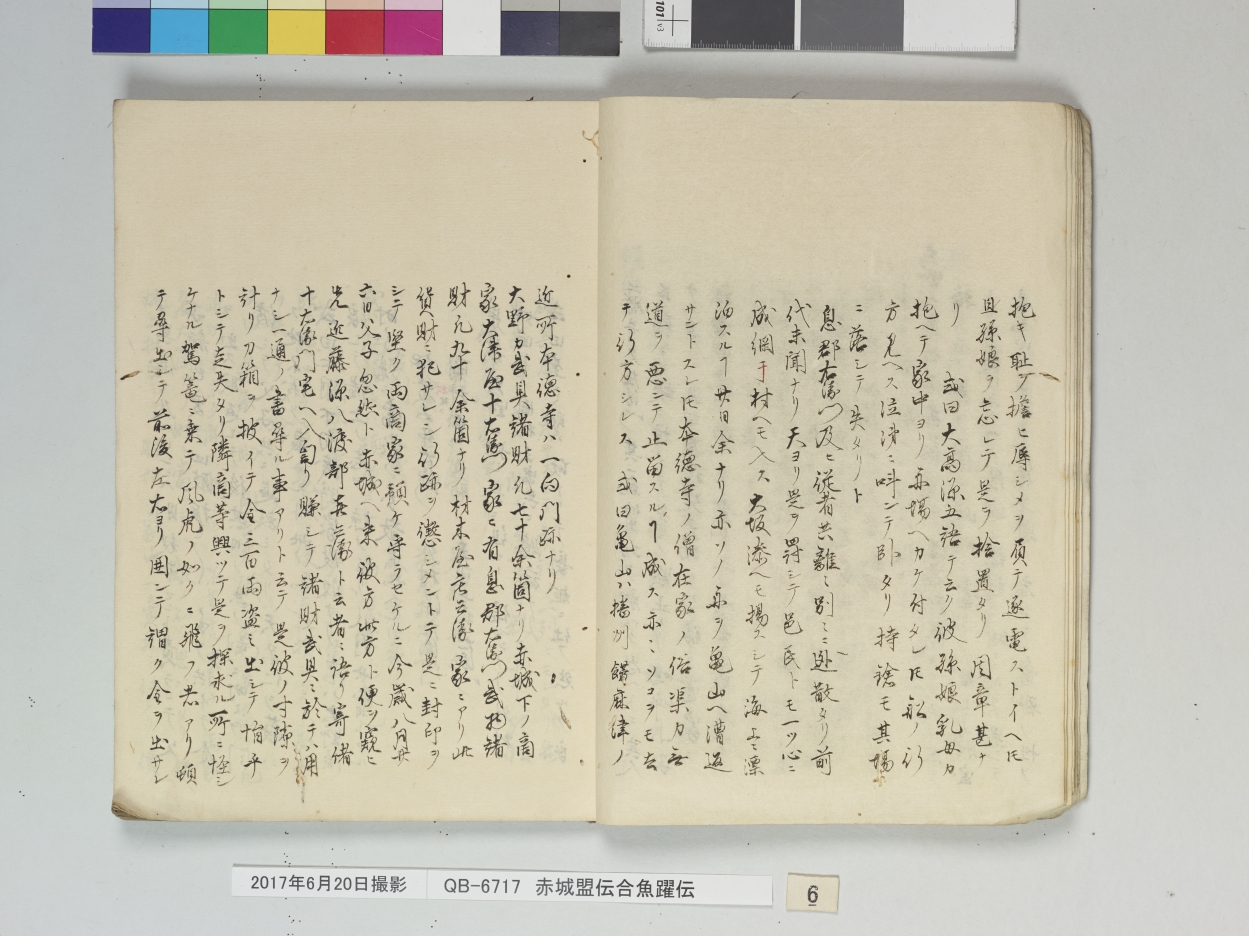 抱キ耻ヲ擔ヒ辱シメヲ負テ逐電ストイヘ𪜈
且孫娘ヲ忘レテ是ヲ捨置タリ周章甚ナ
リ 或曰大高源五語テ云ク彼孫娘乳母カ
抱ヘテ家中ヨリ舟場ヘカケ付タレ𪜈舩ノ行
方見ヘス泣滑ニ呌ンテ臥タリ持鎗モ其場
ニ落シテ失タリト
息郡右衛門及ヒ従者共離ニ別ニニ迯散タリ前
代未聞ナリ天ヨリ是ヲ罸シテ邑民トモ一ツ心ニ
成綱干村ヘモ入ス大坂湊ヘモ揚スシテ海上ニ漂
泊スルヿ廿日余ナリ亦ソノ舟ヲ亀山ヘ漕返
サントスレ𪜈本徳寺ノ僧在家ノ俗渠カ無
道ヲ悪ンテ止畄スルヿ成ス亦ミツコヲモ去
テ行方シレス 或曰亀山ハ播州餝麻津ノ
近所本徳寺ハ一向門跡ナリ
大野カ武具諸財凡七十余箇ナリ赤城下ノ商
家大津屋十右衛門家ニ有息郡右衛門武物諸
財凡九十余箇ナリ材木屋庄三衛家ニアリ此
貨財ニ犯サレシ行跡ヲ懲シメントテ是ニ封印ヲ
シテ堅ク両商家ニ預ケ守ラセケルニ今歳八月廿
六日父子忽然ト赤城ヘ来彼方此方ト便ヲ窺ヒ
先近藤源八渡部嘉兵衛ト云者ニ語り寄緒
十右衛門宅ヘ入匐り賺シテ諸財武具ニ於テハ用
ナシ一通ノ書尋ル事アリト云テ是彼ノ寸隙ヲ
計り刀箱ヲ披イテ金三百両盗ミ出シテ悄乎
トシテ走失タリ隣商等興ツテ是ヲ探求ル所ニ怪シ
ケナル駕篭ニ乗テ風虎ノ如クニ飛フ者アリ頓
テ尋出シテ前後左右ヨリ囲ンテ謂ク金ヲ出サレ
2017年6月20日撮影 QB-6717 赤城盟伝合魚躍伝
6
101 v3